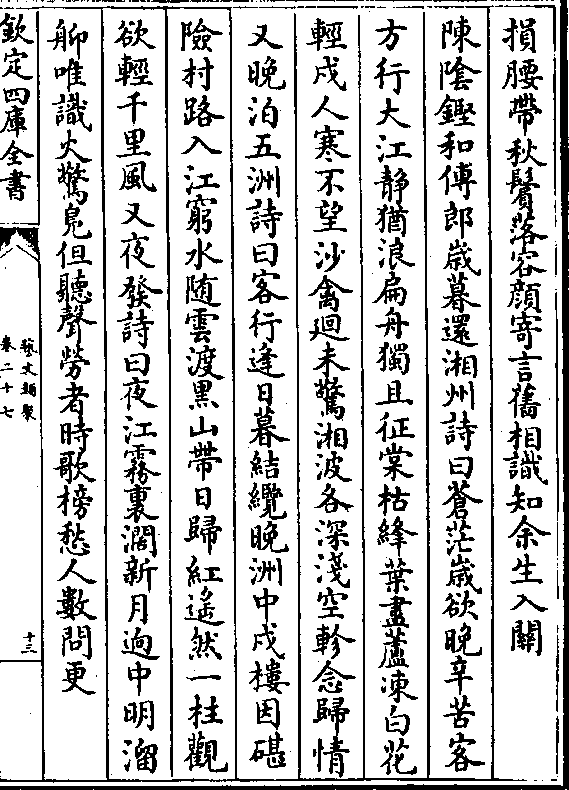 損腰帶秋鬢落容顔寄言舊相識知余生入關
陳陰鏗和傅郎歳暮還湘州詩曰蒼茫歳欲晚辛苦客
方行大江静猶浪扁舟獨且征棠枯絳葉盡蘆凍白花
輕戍人寒不望沙禽迴未驚湘波各深淺空軫念歸情
又晚泊五洲詩曰客行逢日暮結纜晚洲中戍樓因碪
險村路入江窮水随雲渡黒山帶日歸紅遥然一柱觀
欲輕千里風又夜發詩曰夜江霧裏濶新月逈中明溜
船唯識火驚鳬但聽聲勞者時歌榜愁人數問更
欽定四庫全書
藝文類聚
卷二十七
十三